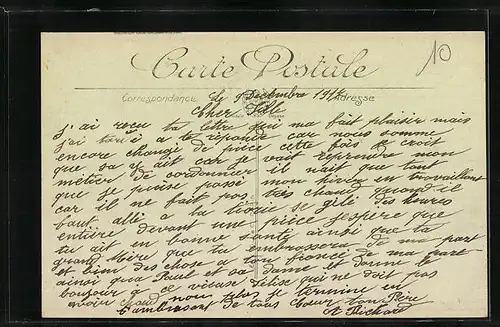 10
Carte Postale
Correspondance
Adresse
Le 9 Décembre 1917
Cher
j'ai reçu ta lettre qui ma fait plaisir mais
j'ai a te répondre car nous somme
encore changé de pièce cette fois je croit
que sa y ait car je vait reprendre mon
métier de cordonnier il nait que tant
que je puise passé mon hiver en travaillant
car il ne fait pas très chaud quand il
faut allé a la se gelé des heures
entière devant une pièce jespère que
tu ait en bonne santé ainsi que ta
grand Mère que tu embrassera de ma part
et bien des chose a ton de ma part
ainsi qua et sa dame et donne le
bonjour de ce qui ne doit pas
avoir chaud non plus je termine en
t'embrassant de tous cœur ton Père
A Richard